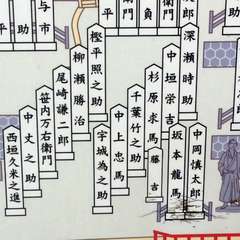 深瀬時助
中垣栄吉
杉原求馬
千葉竹之助
中上忠馬
宇城為之助
樫平照之助
柳瀬勝治
尾崎謙二郎
笹内万右衛門
中丈之助
西垣久米之進
中岡慎太郎
坂本龍馬
藤吉